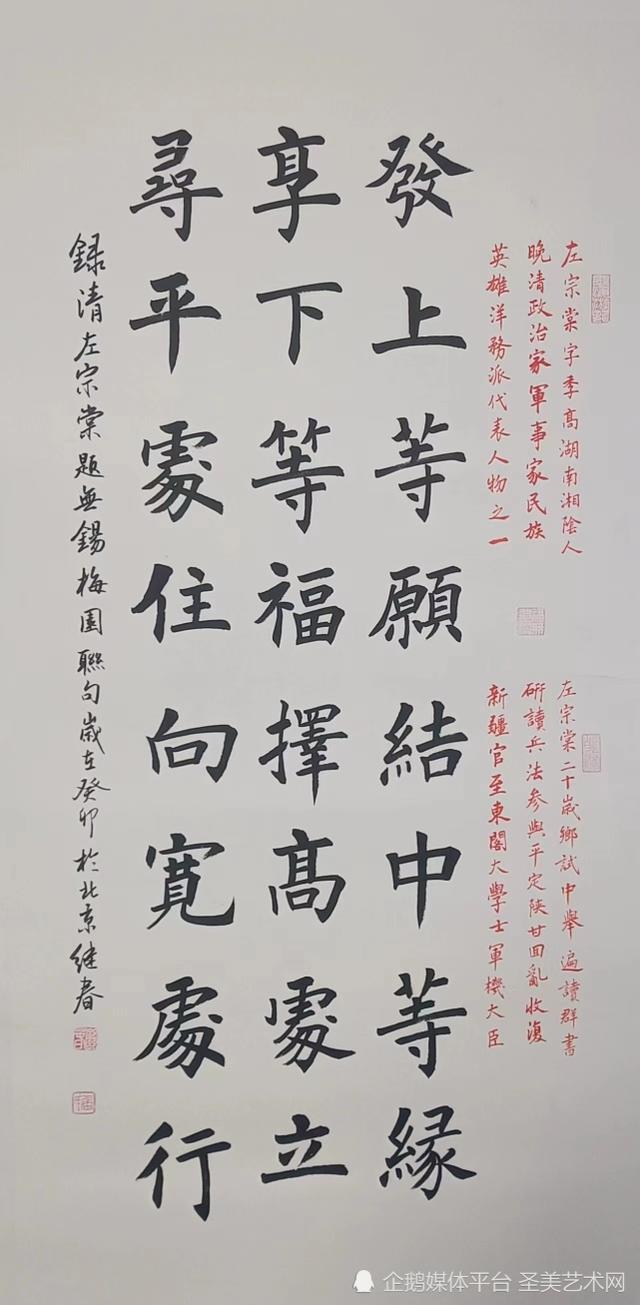 左宗棠字季高湖南湘陰人
晚清政治家軍事家民族
英雄洋務派代表人物之一
左宗棠二十歲鄉試中舉遍讀群書
研讀兵法參與平定陝甘回亂收復
新疆官至東閣大學士軍機大臣
發上等願結中等緣
享下等福擇高處立
尋平處住向寬處行
録清左宗棠題無錫梅園聯句歲在癸卯於北京继春
企鹅媒体平台 圣美艺术网